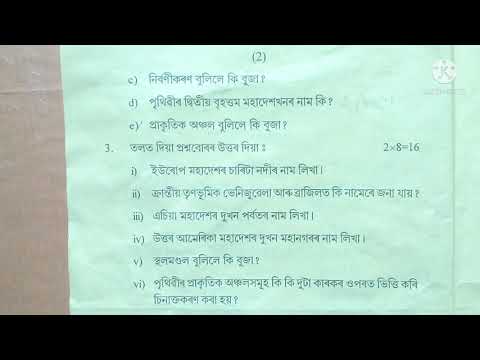 (2)
c) নিৰ্বণীকৰণ বুলিলে কি বুজা?
d) পৃথিৱীৰ দ্বিতীয় বৃহত্তম মহাদেশখনৰ নাম কি?
e) প্ৰাকৃতিক অঞ্চল বুলিলে কি বুজা?
3. তলত দিয়া প্ৰশ্নবোৰৰ উত্তৰ দিয়া : 2×8=16
i) ইউৰোপ মহাদেশৰ চাৰিটা নদীৰ নাম লিখা।
ii) ক্ৰান্তীয় তৃণভূমিক ভেনিজুৱেলা আৰু ব্ৰাজিলত কি নামেৰে জনা যায়?
iii) এচিয়া মহাদেশৰ দুখন পৰ্বতৰ নাম লিখা।
iv) উত্তৰ আমেৰিকা মহাদেশৰ দুখন মহানগৰৰ নাম লিখা।
v) স্থলমণ্ডল বুলিলে কি বুজা?
vi) পৃথিৱীৰ প্ৰাকৃতিক অঞ্চলসমূহ কি কি দুটা কাৰকৰ ওপৰত ভিত্তি কৰি
চিনাক্তকৰণ কৰা হয়?